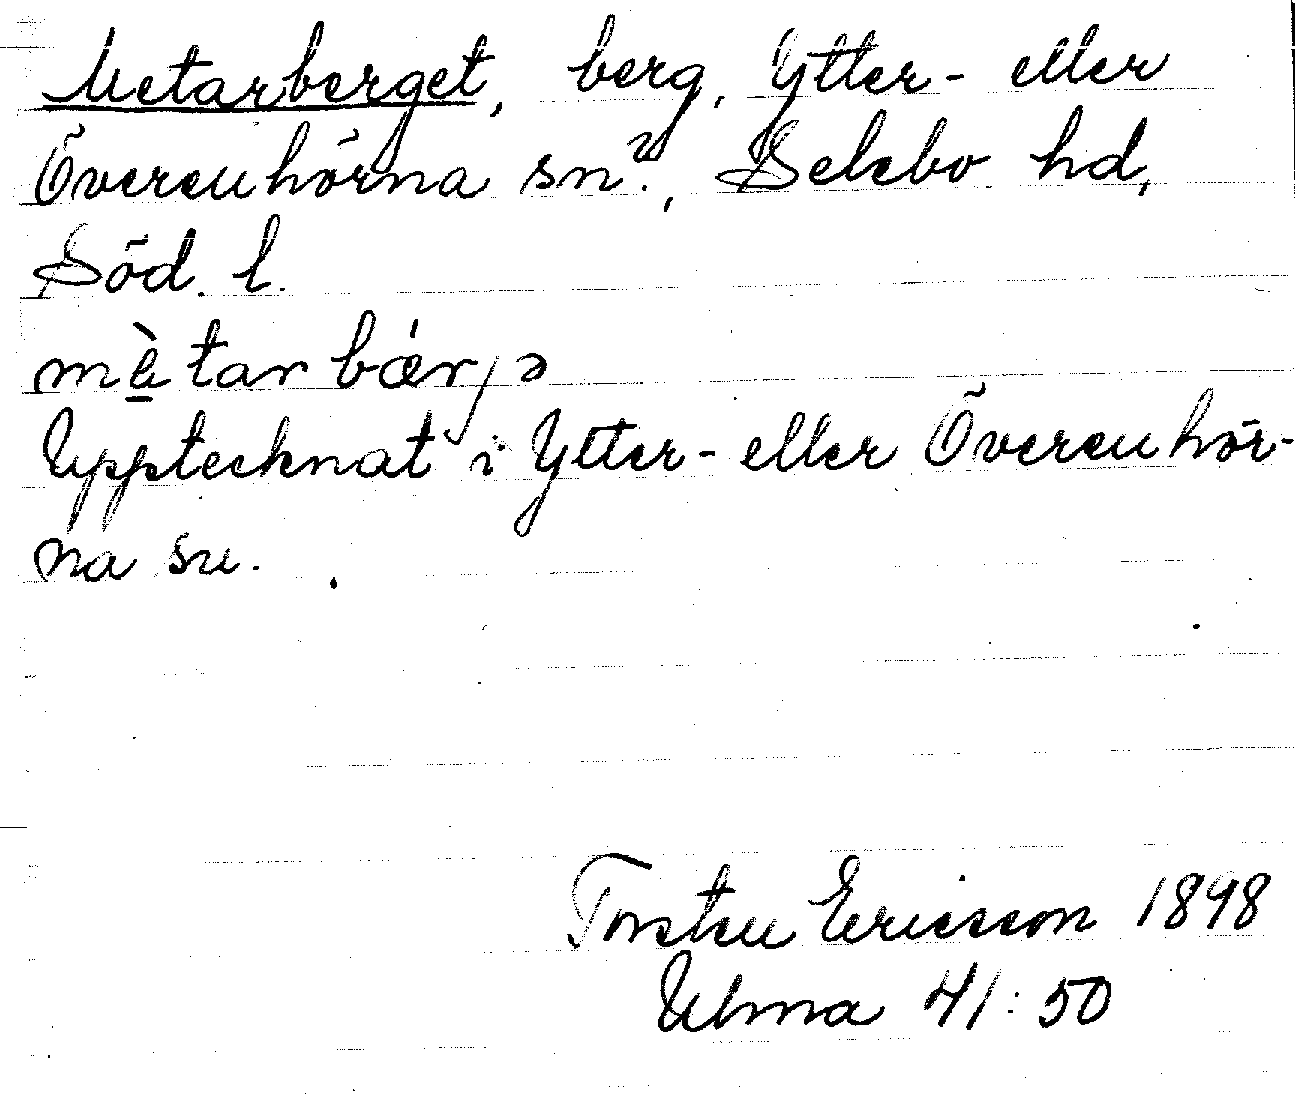 Metarberget, berg, Ytter- eller
Överenhörna sn?, Selebo hd,
Söd. l.
mè̱tarbǽrjə
Upptecknat i Ytter- eller Överenhör-
na sn.
Torsten Ericsson 1898
Ulma 41:50